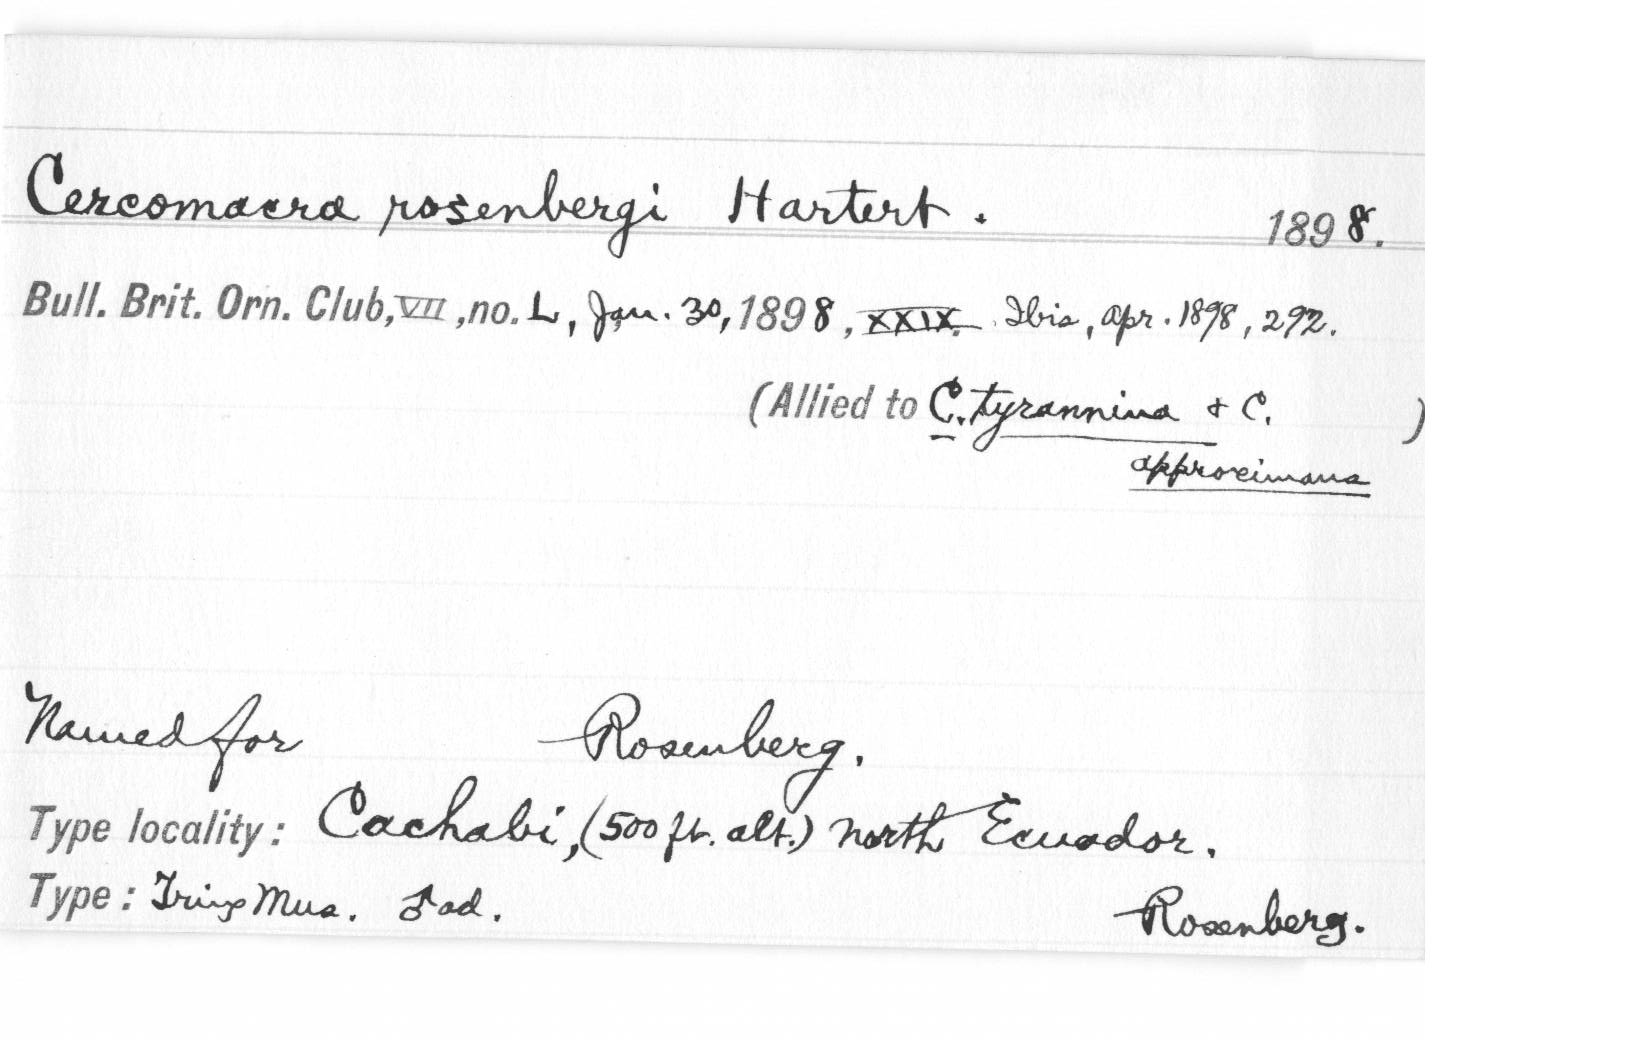 Cercomacra rosenbergi Hartert. 1898.
Bull. Brit. Orn. Club, VII, no. L, Jan. 30, 1898, XXIX. Ibis, Apr. 1898, 292.
(Allied to C. tyrannina & C. )
approximans
Named for Rosenberg.
Type locality: Cachabi, (500 ft. alt.) North Ecuador.
Type: Tring Mus. ♂ ad. Rosenberg.